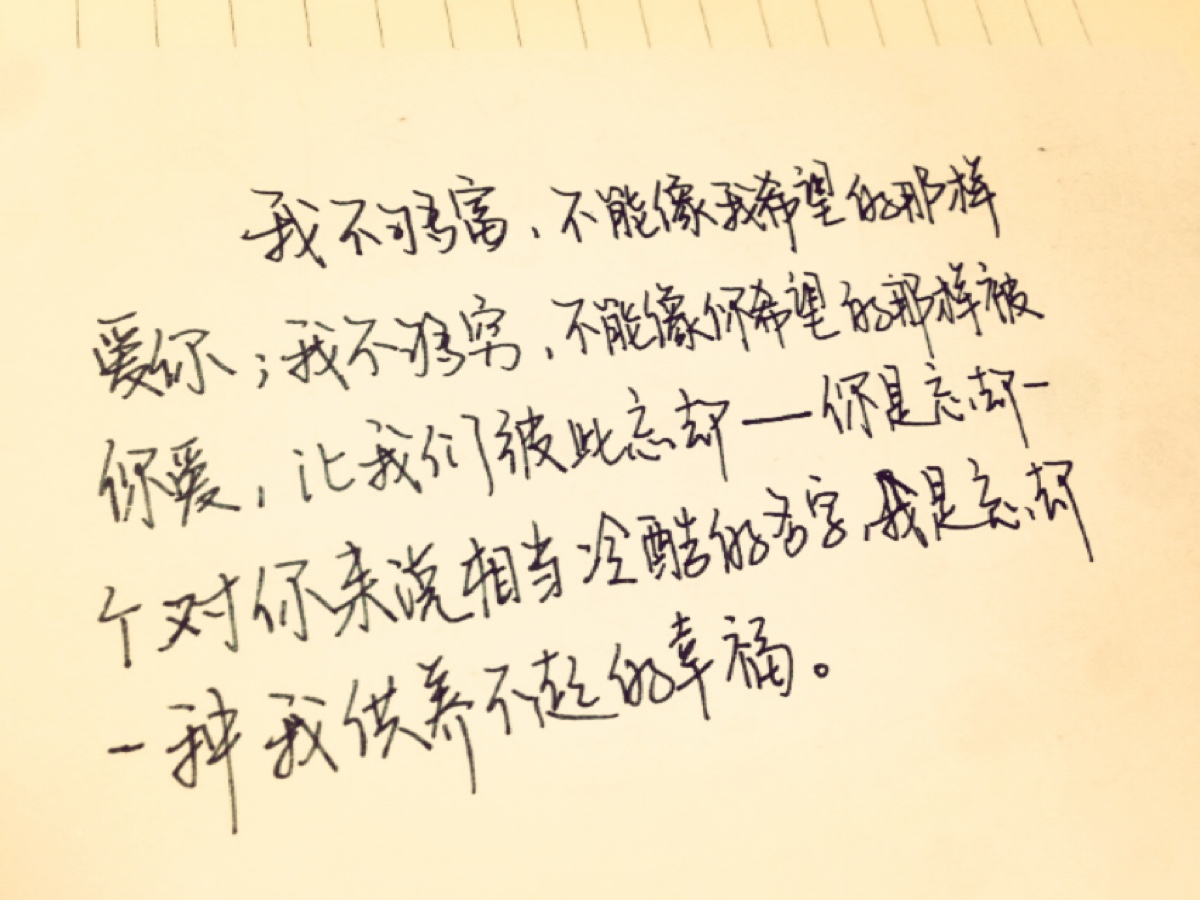 我不够富，不能像我希望的那样
爱你；我不够穷，不能像你希望的那样被
你爱，让我们彼此忘却——你是忘却一
个对你来说相当冷酷的名字，我是忘却
一种我供养不起的幸福。